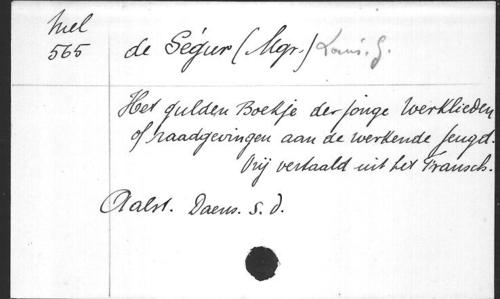 Mel
565
de Ségur (Mgr.) Louis. G.
Het gulden Boekje der jonge Werklieden
of raadgevingen aan de werkende Jeugd.
Vrij vertaald uit het Fransch.
Aalst. Daens. s.d.